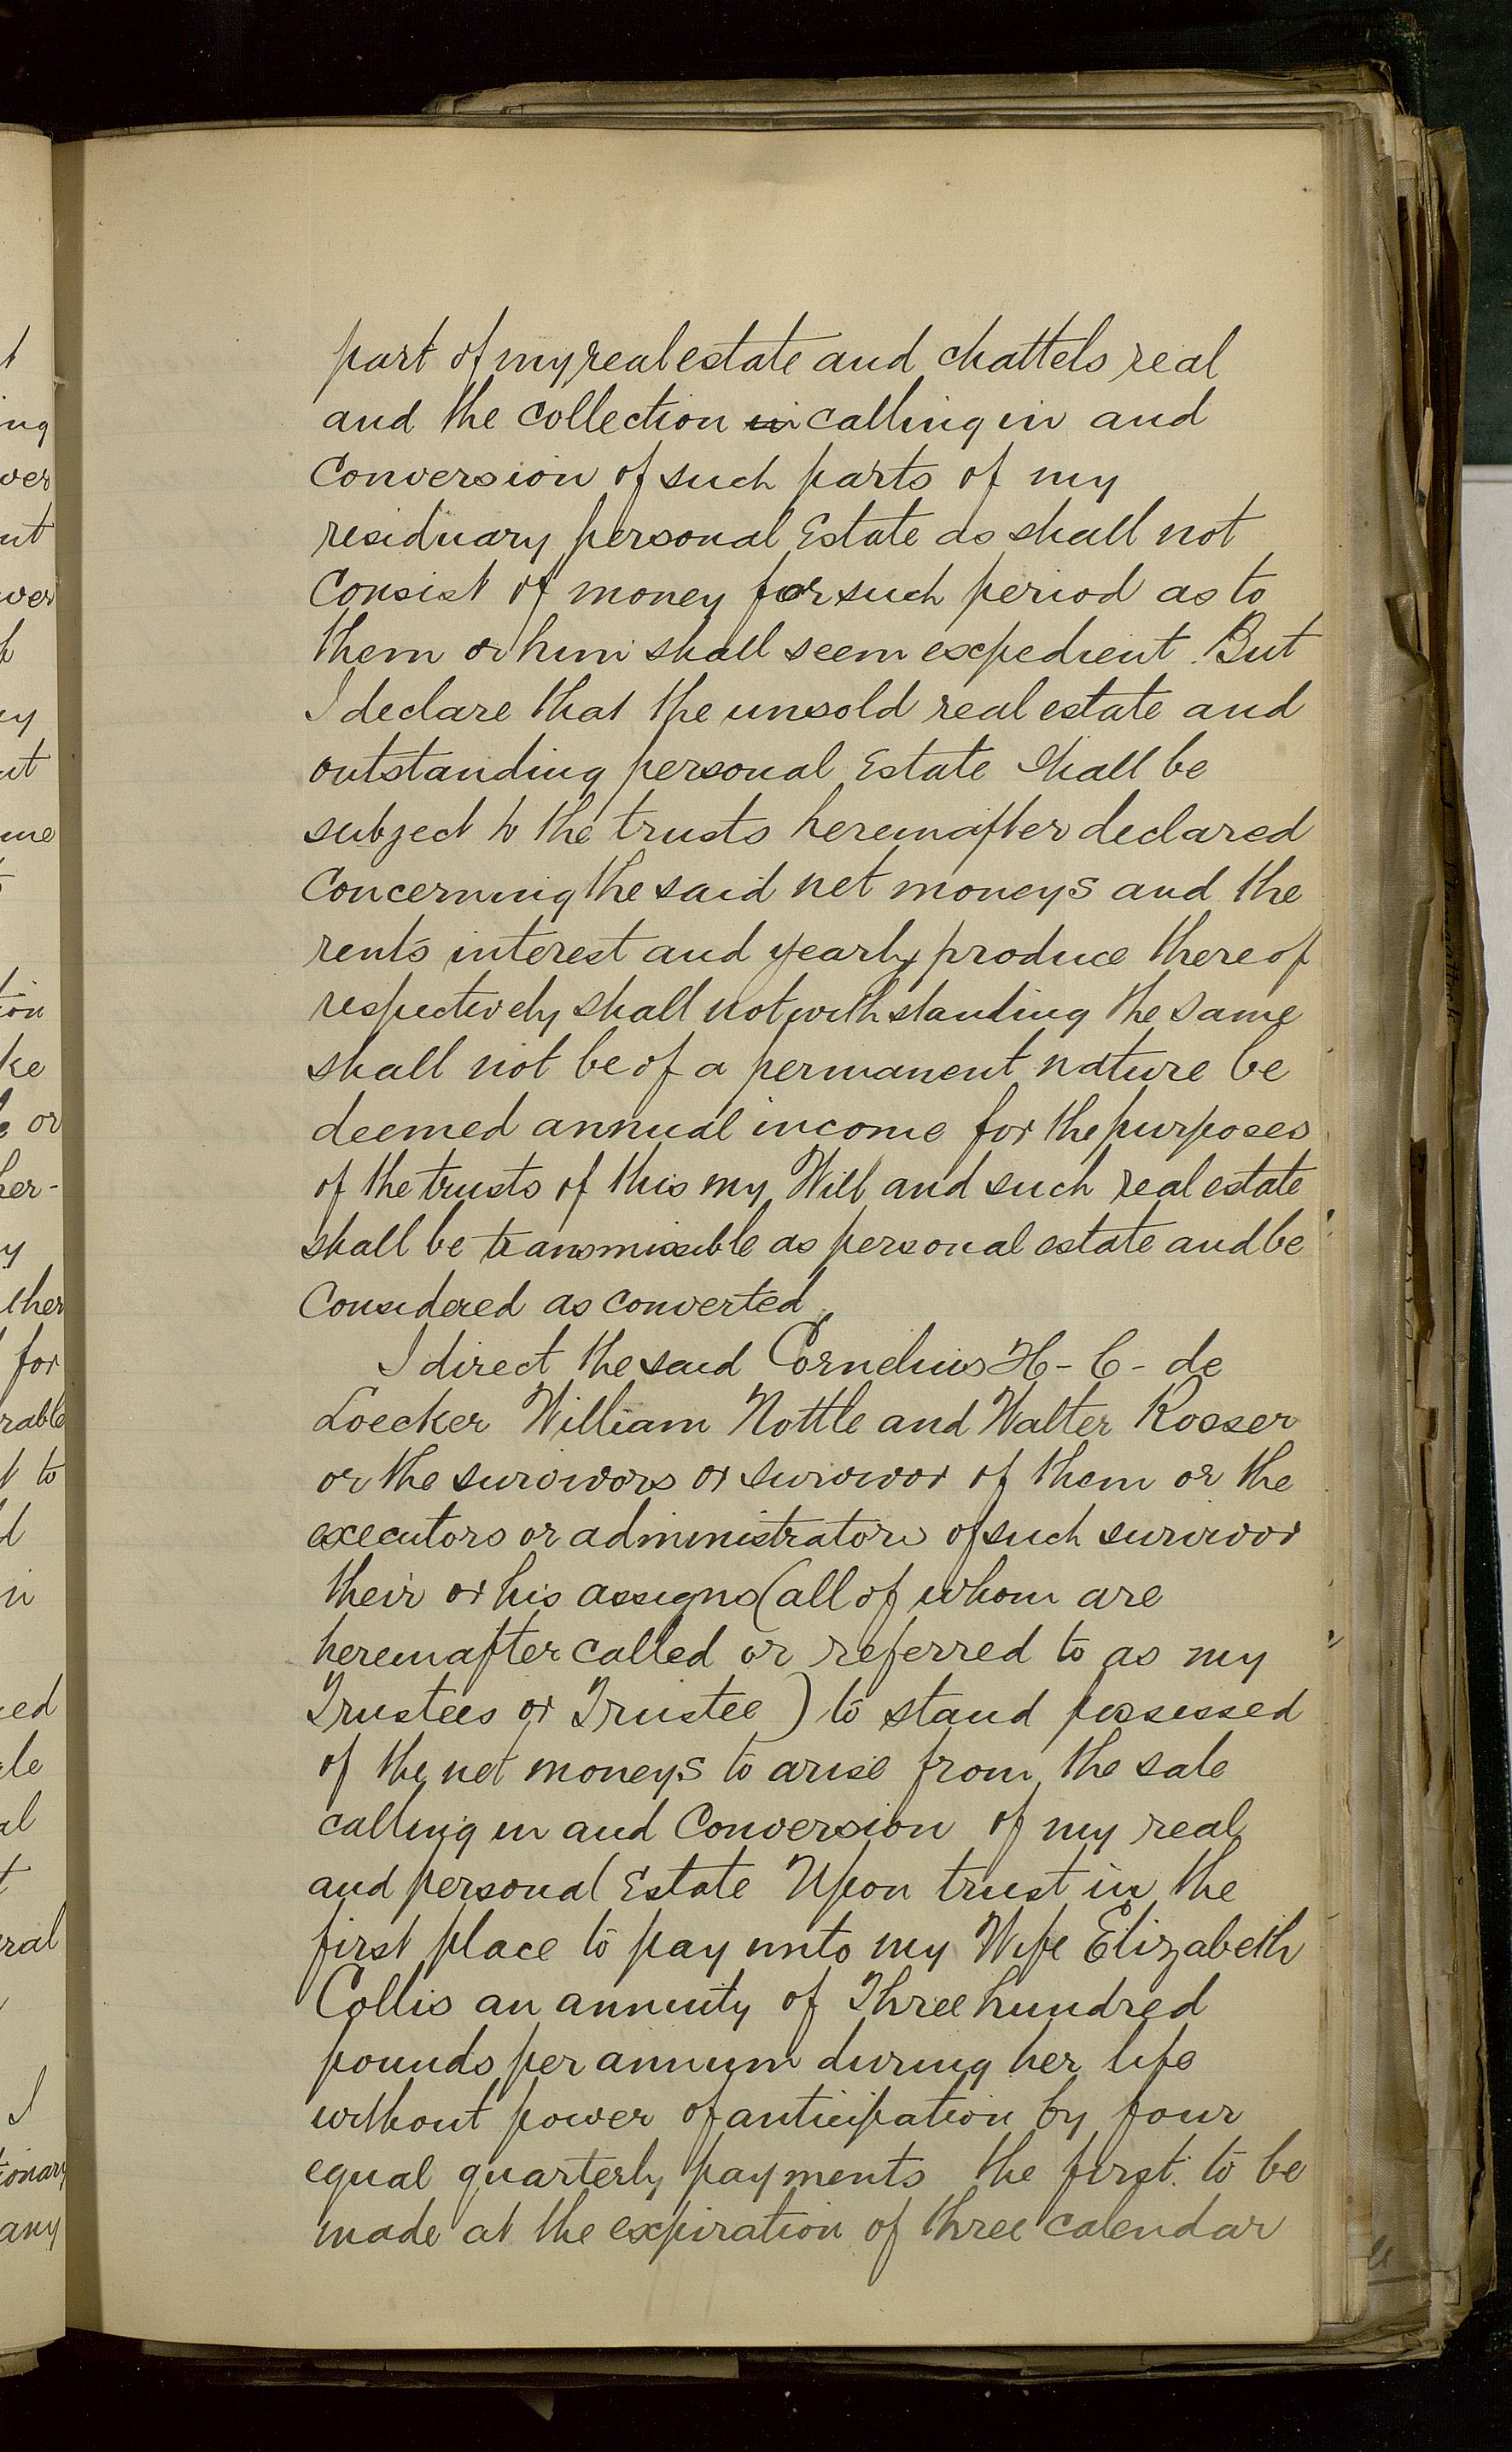 part of my real estate and chattels real
and the collection in calling in and
Conversion of such parts of my
residuary personal Estate as shall not
Consist of money for such period as to
them or him shall seem expedient. But
I declare that the unsold real estate and
outstanding personal Estate shall be
subject to the trusts hereinafter declared
Concerning the said net moneys and the
rents interest and yearly produce thereof
respectively shall notwithstanding the same
shall not be of a permanent nature be
deemed annual income for the purposes
of the trusts of this my Will and such real estate
shall be transmissible as personal estate and be
Considered as converted
I direct the said Cornelius H - C - de
Loecker William Nottle and Walter Rosser
or the survivors or survivor of them or the
executors or administrators of such survivor
their or his assigns (all of whom are
hereinafter called or referred to as my
Trustees or Trustee) to stand possessed
of the net moneys to arise from the sale
calling in and Conversion of my real
and personal Estate Upon trust in the
first place to pay unto my Wife Elizabeth
Collis an annuity of Three hundred
pounds per annum during her life
without power of anticipation by four
equal quarterly payments the first to be
made at the expiration of three calendar